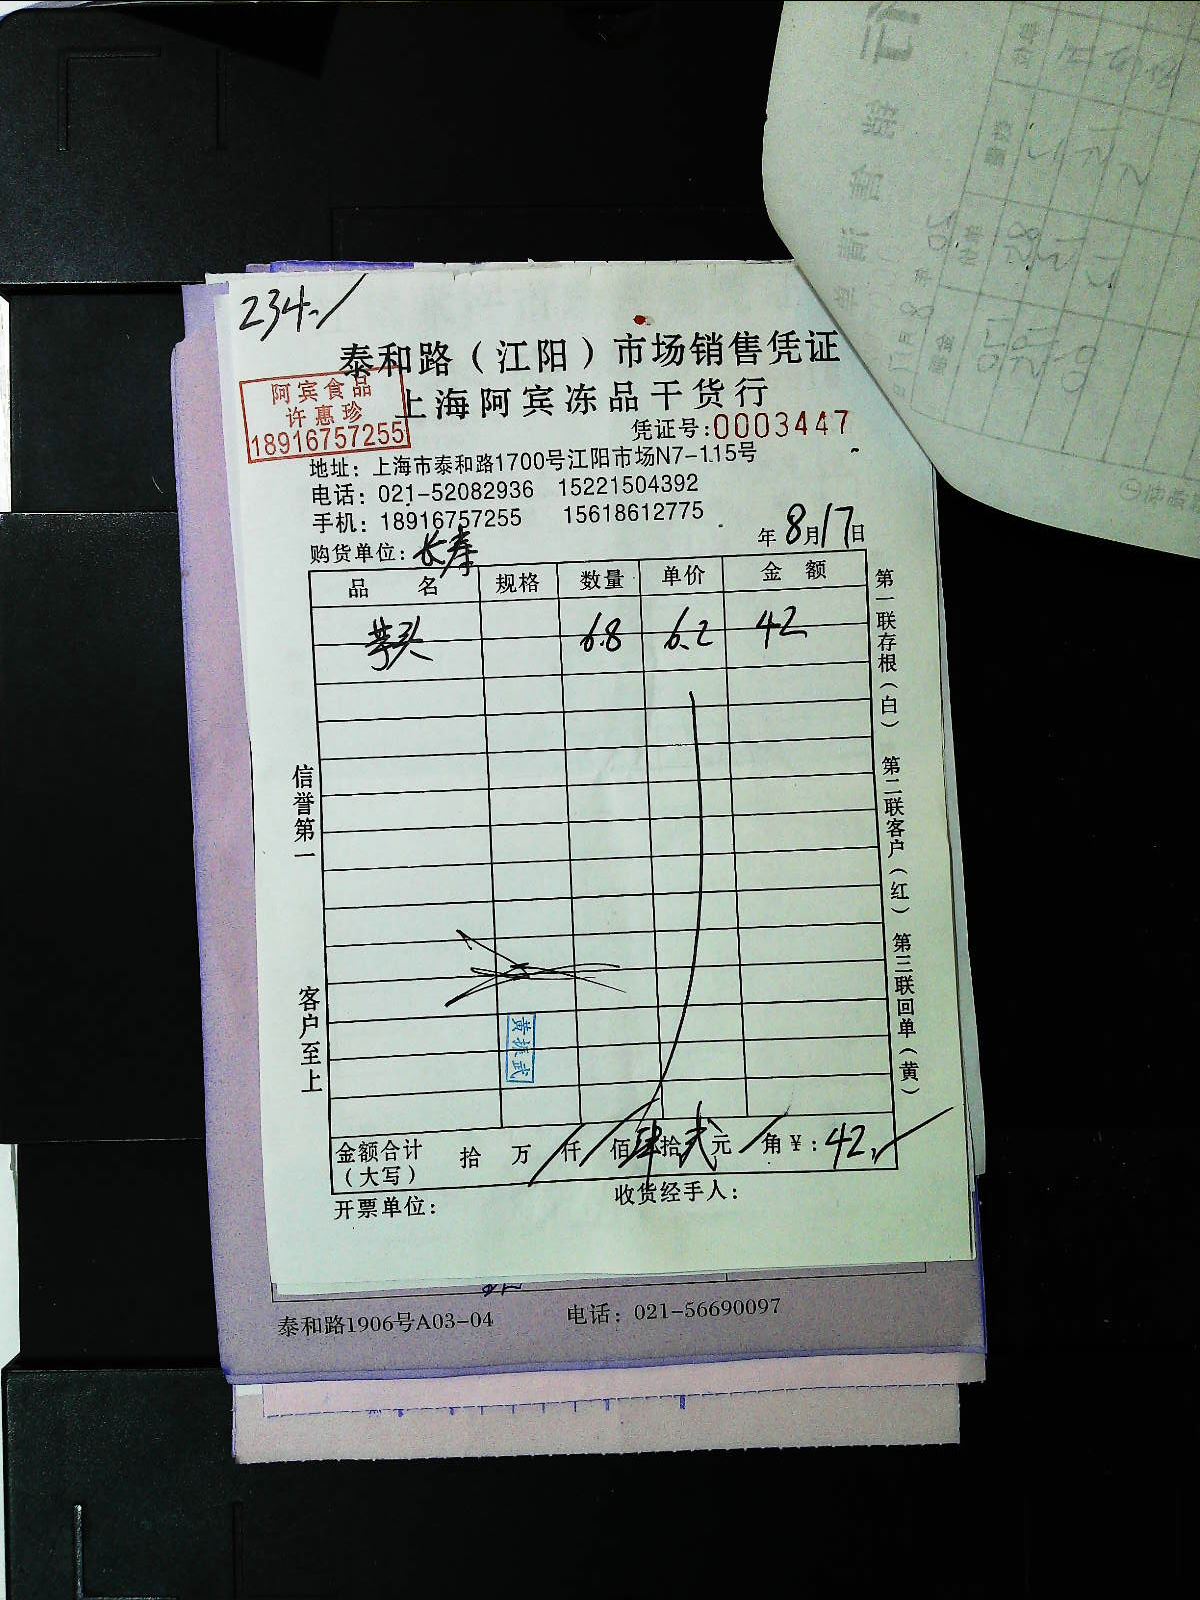 234-
泰和路（江阳）市场销售凭证
上海阿宾冻品干货行
阿宾食品
许惠珍
18916757255
凭证号:0003447
地址：上海市泰和路1700号江阳市场N7-115号
电话：021-52082936 15221504392
手机：18916757255 15618612775
购货单位：长寿
年8月17日
品名 规格 数量 单价 金额
芋头 6.8 6.2 42
信誉第一
客户至上
第一联存根（白） 第二联客户（红） 第三联回单（黄）
黄振武
金额合计（大写） 拾 万 仟 佰肆拾贰元 角￥：42.
开票单位： 收货经手人：
泰和路1906号A03-04 电话：021-56690097